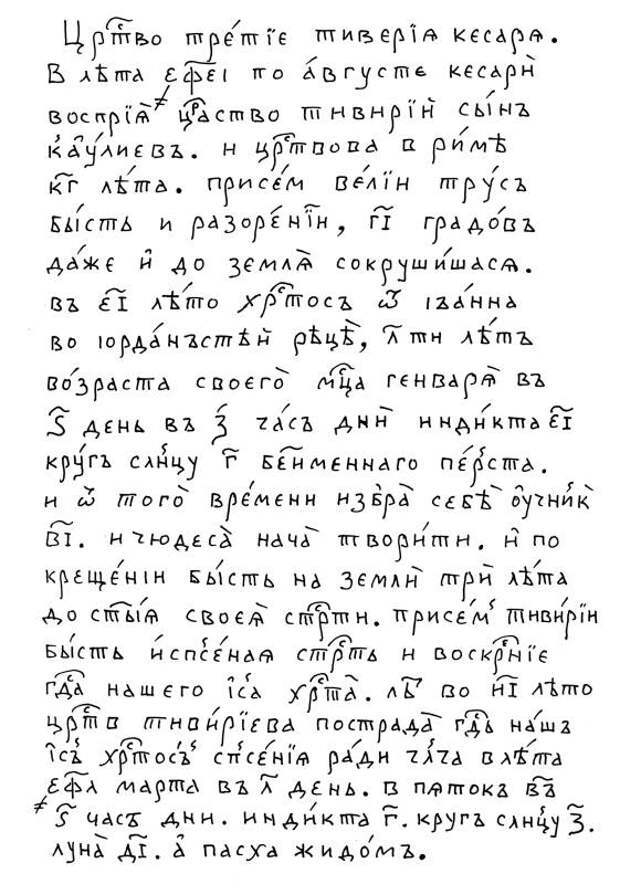 Црⷭ҇тво тре́тїе тиверїѧ кесарѧ.
В лѣта ҂є҃фєі по а́вгусте кесарѝ
воспрїѧ̀ црⷭ҇тво тивирїи сы́нъ
каѵ́лиевъ. и црⷭ҇твова в ри́мѣ
к҃г лѣ́та. присе́м ве́лїи тру́съ
бы́сть и разоре́нїи, г҃і градо́въ
да́же и҆ до землѧ̀ сокруши́шасѧ.
въ є҃і лѣ́то хрⷭ҇тосъ ѿ іѡа́нна
во іорда́нъстѣй рѣцѣ̀, л҃ ти лѣ́тъ
во́зраста своего̀ мцⷭ҇а генварѧ̀ въ
ѕ҃ день въ з҃ ча́съ днѝ инди́кта є҃і
кру́гъ слн҃цу г҃ без̾именнаго пе́рста.
и ѿ того̀ вре́мени избра̀ себѣ̀ оу҆чн҃икъ
в҃і. и чюдеса̀ нача̀ твори́ти. и҆ по
креще́нїи бы́сть на землѝ трѝ лѣ́та
до ст҃ы́ѧ своеѧ̀ стрⷭ҇ти. присе́м тиви́рїи
бы́сть и҆спⷭ҇се́ная стрⷭ҇ть и воскрⷭ҇нїе
гдⷭ҇а нашего і҆са хрⷭ҇та̀. лѣⷮ во и҃і лѣто
црⷭ҇тв тиви́рїева пострада̀ гдⷭ҇ь на́шъ
і҆сⷭ҇ъ хрⷭ҇тосъ спⷭ҇се́нїѧ ра́ди члⷭ҇ча в лѣ́та
҂є҃фла марта въ л҃ день. в пѧтокъ въ
ѕ҃ часъ дни. инди́кта г҃. кругъ слн҃цу з҃.
луна̀ д҃і. а҆ пасха жидо́мъ.